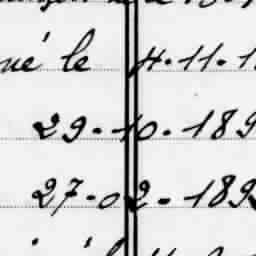 né le 4.11.1
29.10.189
27.02.189